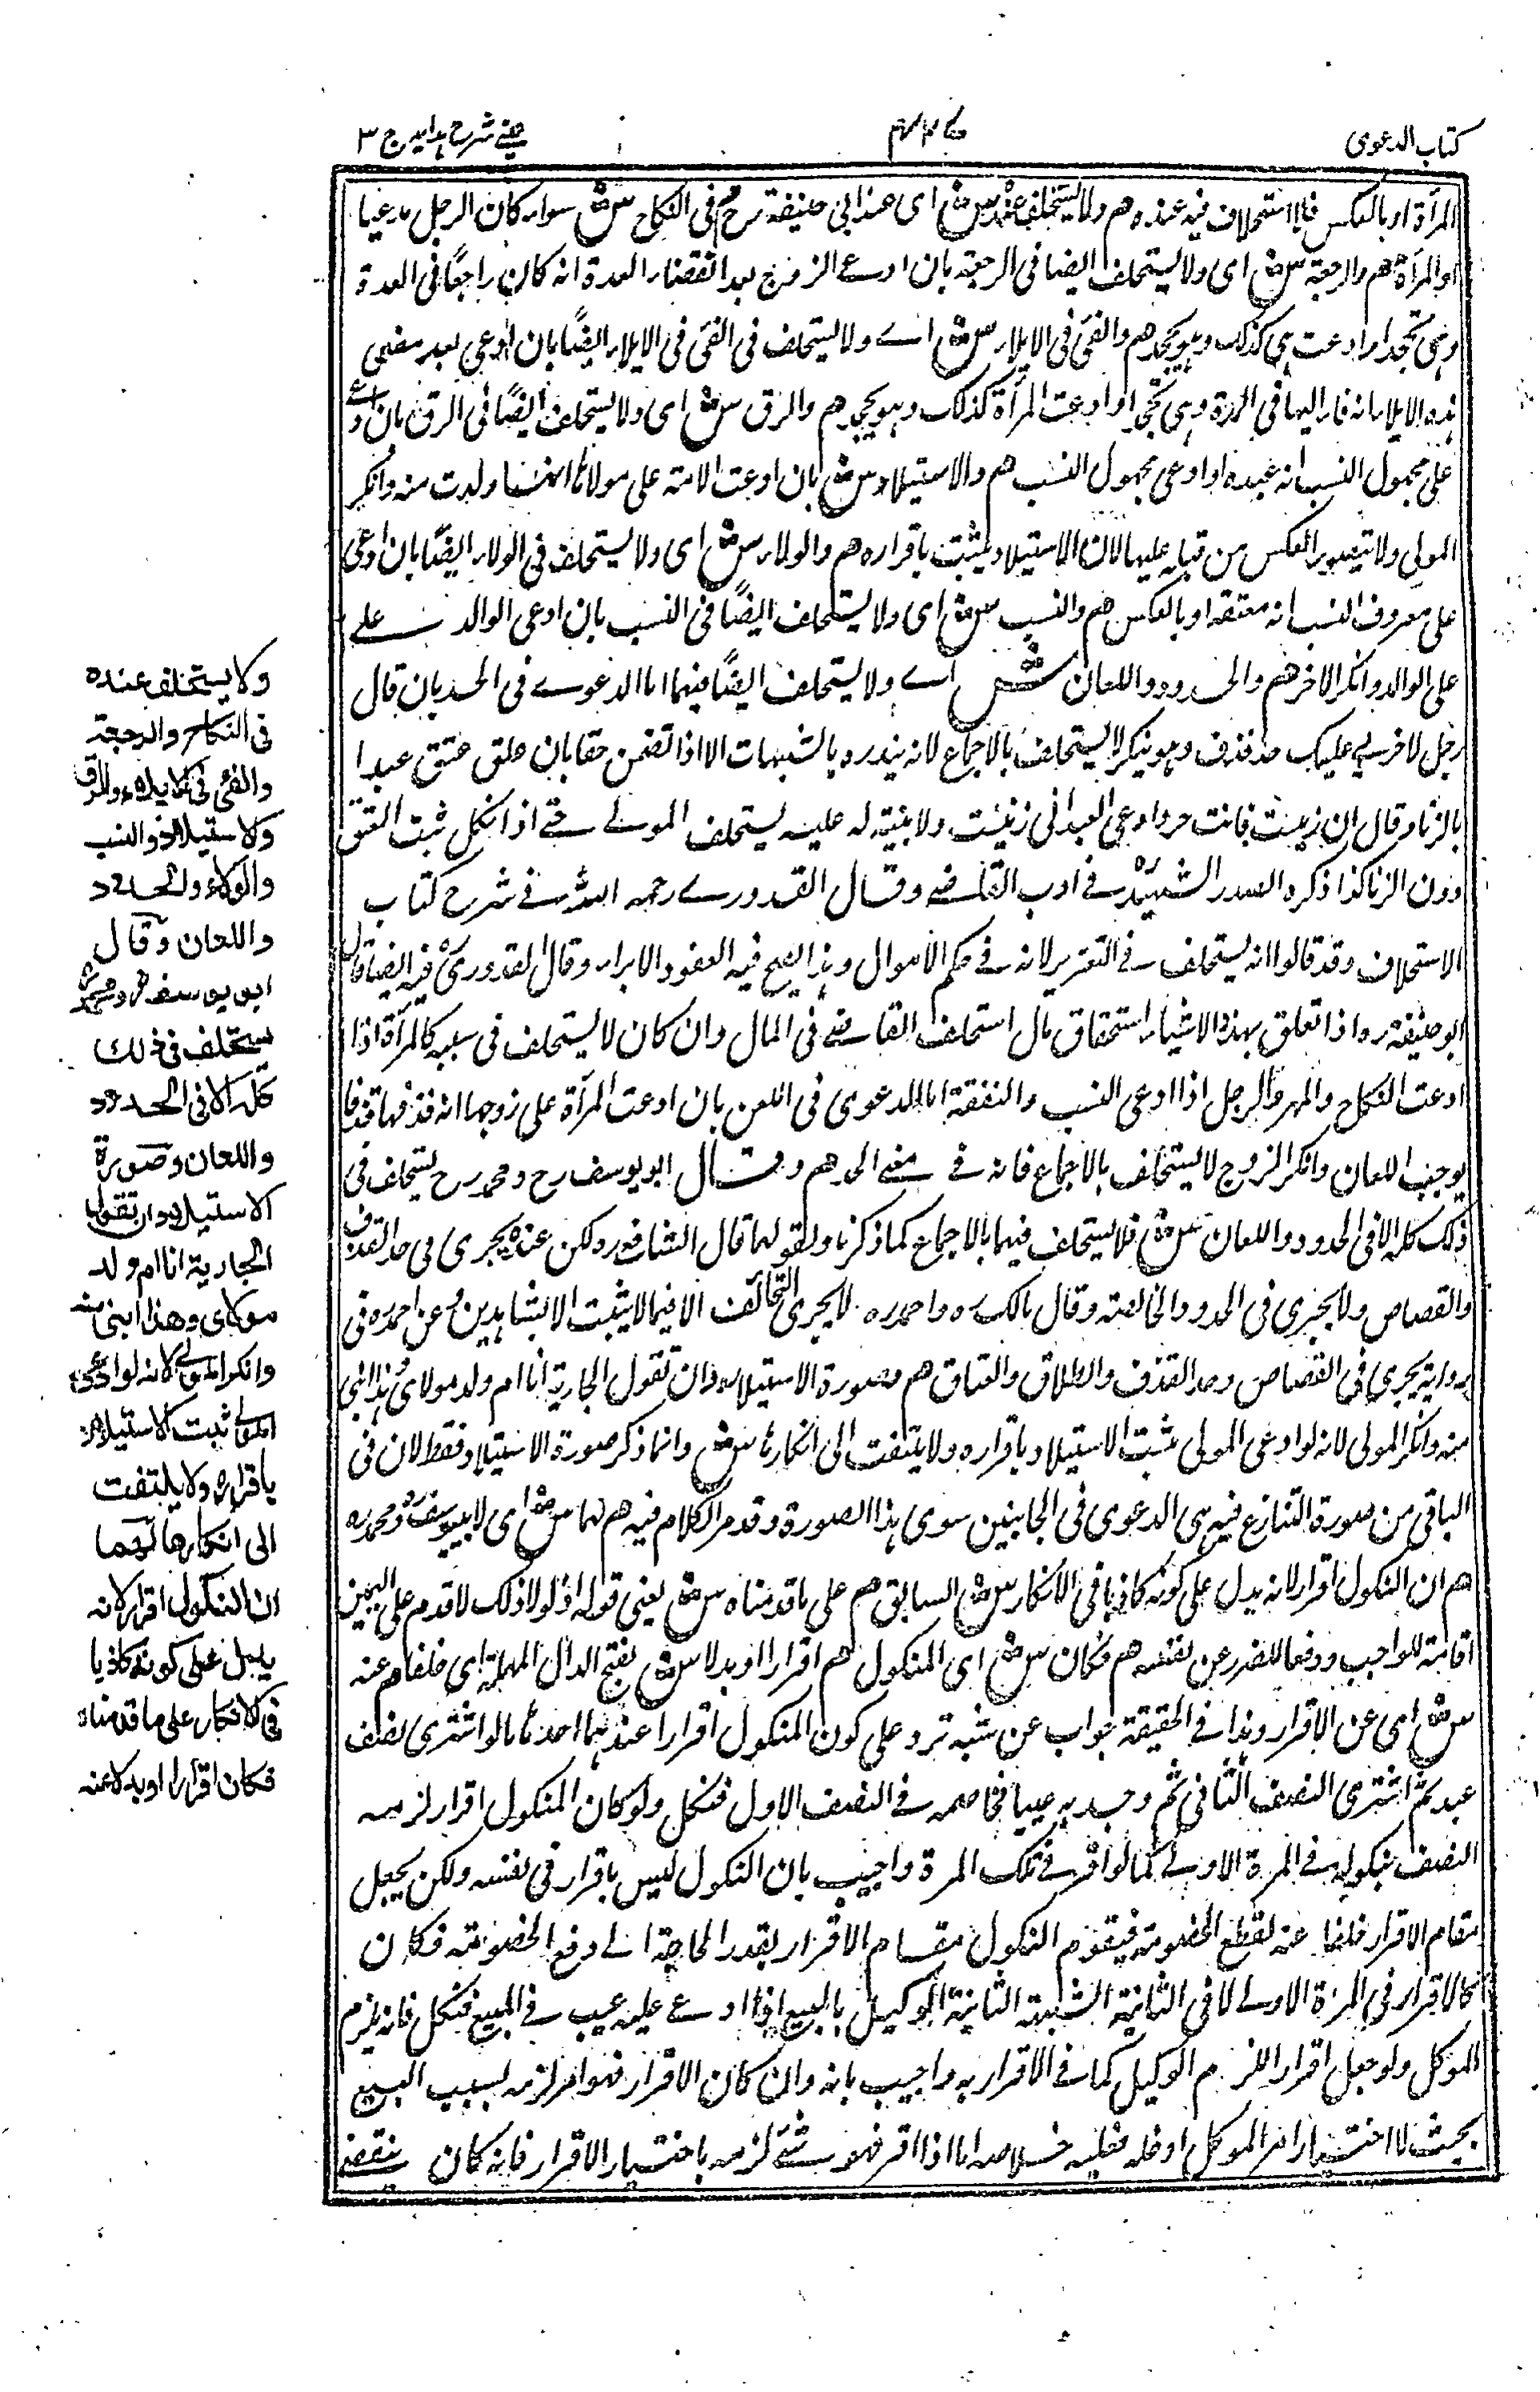 كتاب الدعوى
عينى شرح هدايه ج ٣
المرأة او بالعكس فلا استحلاف فيه عنده هم ولا يستحلف عنده ش اى عند ابى حنيفة رح هم فى النكاح ش سواء كان الرجل مدعيا
او المرأة هم والرجعة ش اى ولا يستحلف ايضا فى الرجعة بان ادعى الزوج بعد انقضاء العدة انه كان راجعا فى العدة
وهى تجحد او ادعت هى كذلك وهو يجحد هم والفئ فى الايلاء ش اى ولا يستحلف فى الفئ فى الايلاء ايضًا بان ادعى بعد مضى
مدة الايلاء انه فاء اليها فى المدة وهى تجحد او ادعت المرأة كذلك وهو يجحد هم والرق ش اى ولا يستحلف ايضًا فى الرق بان ادعى
على مجهول النسب انه عبده او ادعى مجهول النسب هم والاستيلاد ش بان ادعت الامة على مولاها انها ولدت منه وانكر
المولى ولا يتصور العكس من قبله عليها لان الاستيلاد يثبت باقراره هم والولاء ش اى ولا يستحلف فى الولاء ايضًا بان ادعى
على معروف النسب انه معتقه او بالعكس هم والنسب ش اى ولا يستحلف ايضًا فى النسب بان ادعى الوالد على
على الوالد وانكر الاخر هم والحدود واللعان ش اى ولا يستحلف ايضًا فيهما اما الدعوى فى الحد بان قال
رجل لاخر لى عليك حد قذف وهو ينكر لا يستحلف بالاجماع لانه يندرء بالشبهات الا اذا تضمن حقا بان علق عتق عبدا
بالزنا وقال ان زنيت فانت حر وادعى العبد انى زنيت ولا بينة له عليه يستحلف المولى حتى اذا نكل ثبت العتق
دون الزنا كذا ذكره الصدر الشهيد فى ادب القاضى وقال القدورى رحمه الله فى شرح كتاب
الاستحلاف وقد قالوا انه يستحلف فى التعزير لانه فى حكم الاموال وهذا يصح فيه العفو والابراء وقال القدورى فيه ايضا قال
ابو حنيفة ره اذا تعلق بهذه الاشياء استحقاق مال استحلف القاضى فى المال وان كان لا يستحلف فى سببه كالمرأة اذا
ادعت النكاح والمهر والرجل اذا ادعى النسب والنفقة اما الدعوى فى اللعن بان ادعت المرأة على زوجها انه قذفها قذفا
يوجب اللعان وانكر الزوج لا يستحلف بالاجماع فانه فى معنى الحد هم وقال ابو يوسف رح ومحمد رح يستحلف فى
ذلك كله الا فى الحدود واللعان ش فلا يستحلف فيهما بالاجماع كما ذكرنا وبقولهما قال الشافعى ره ولكن عنده يجرى فى حد القذف
والقصاص ولا يجرى فى الحدود الخالصة وقال مالك ره واحمد ره لا يجرى التحالف الا فيما لا يثبت الا بشاهدين وعن احمد ره فى
رواية يجرى فى القصاص وحد القذف والطلاق والعتاق هم وصورة الاستيلاد ان تقول الجارية انا ام ولد مولاى وهذا ابنى
منه وانكر المولى لانه لو ادعى المولى ثبت الاستيلاد باقراره ولا يلتفت الى انكارها ش وانما ذكر صورة الاستيلاد فقط لان فى
الباقى من صورة التنازع فيه هى الدعوى فى الجانبين سوى هذا الصورة وقد مر الكلام فيه هم لهما ش اى لابى يوسف ره ومحمد ره
هم ان النكول اقرار لانه يدل على كونه كاذبا فى الانكار ش السابق هم على ما قدمناه ش يعنى قوله اذ لولا ذلك لاقدم على اليمين
اقامة للواجب ودفعا للضرر عن نفسه هم فكان ش اى النكول هم اقرارا او بدلا ش بفتح الدال المهملة اى خلفا هم عنه
ش اى عن الاقرار وهذا فى الحقيقة جواب عن شبه ترد على كون النكول اقرارا عندهما احدها ما لو اشترى نصف
عبد ثم اشترى النصف الثانى ثم وجد به عيبا فخاصمه فى النصف الاول فنكل ولو كان النكول اقرار لزمه
النصف بنكوله فى المرة الاولى كما لو اقر فى تلك المرة واجيب بان النكول ليس باقرار فى نفسه ولكن يجعل
مقام الاقرار خلفا عنه لقطع الخصومة فيقوم النكول مقام الاقرار بقدر الحاجة الى دفع الخصومة فكان
كالاقرار فى المرة الاولى لا فى الثانية الشبهة الثانية الوكيل بالبيع اذا ادعى عليه عيب فى المبيع فنكل فانه يلزم
الموكل ولو جعل اقرارا لزم الوكيل كما فى الاقرار به واجيب بانه وان كان الاقرار فهو امر لزمه بسبب البيع
بحيث لا اختيار امر الموكل ادخله فعليه خلاصه اما اذا اقر فهو شئ لزمه باختيار الاقرار فانه كان ينقضى
ولا يستحلف عنده
فى النكاح والرجعة
والفئ فى الايلاء والرق
والاستيلاد والنسب
والولاء والحدود
واللعان وقال
ابو يوسف رح ومحمد رح
يستحلف فى ذلك
كله الا فى الحدود
واللعان وصورة
الاستيلاد ان تقول
الجارية انا ام ولد
مولاى وهذا ابنى منه
وانكر المولى لانه لو ادعى
المولى ثبت الاستيلاد
باقراره ولا يلتفت
الى انكارها لهما
ان النكول اقرار لانه
يدل على كونه كاذبا
فى الانكار على ما قدمناه
فكان اقرارا او بدلا عنه